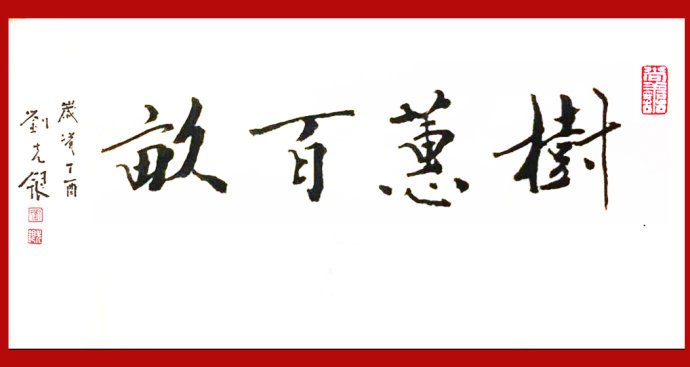 樹蕙百畝
歲次丁酉
劉克銀